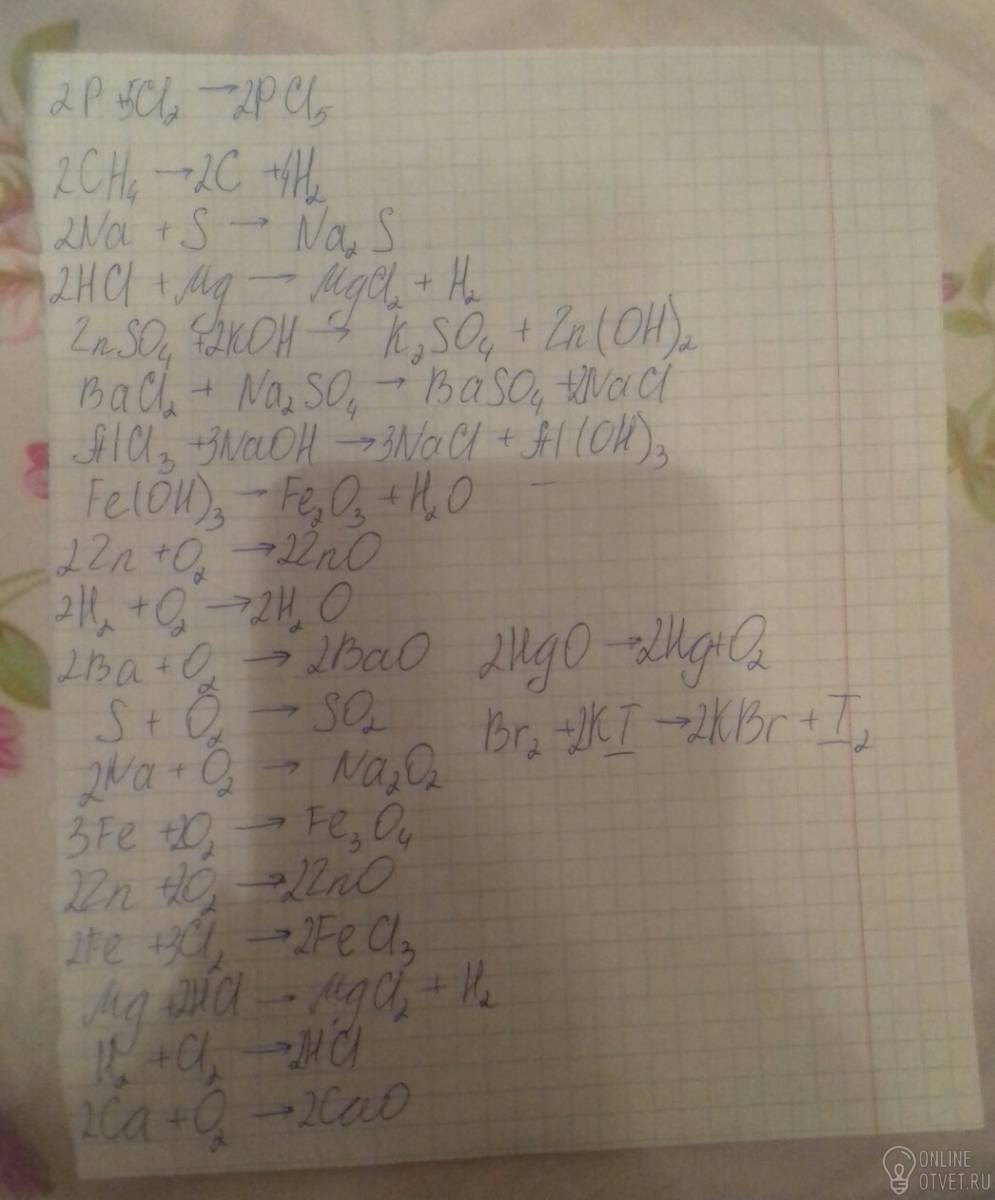 2P +5Cl₂ → 2PCl₅
2CH₄ → 2C +4H₂
2Na + S → Na₂S
2HCl + Mg → MgCl₂ + H₂
ZnSO₄ +2KOH → K₂SO₄ + Zn(OH)₂
BaCl₂ + Na₂SO₄ → BaSO₄ +2NaCl
AlCl₃ +3NaOH → 3NaCl + Al(OH)₃
Fe(OH)₃ → Fe₂O₃ + H₂O
2Zn + O₂ → 2ZnO
2H₂ + O₂ → 2H₂O
2Ba + O₂ → 2BaO
S + O₂ → SO₂
2Na + O₂ → Na₂O₂
3Fe +2O₂ → Fe₃O₄
2Zn +2O₂ → 2ZnO
2Fe +3Cl₂ → 2FeCl₃
Mg +2HCl → MgCl₂ + H₂
H₂ + Cl₂ → 2HCl
2Ca + O₂ → 2CaO
2HgO → 2Hg+O₂
Br₂ +2KI → 2KBr + I₂
ONLINE
OTVET.RU